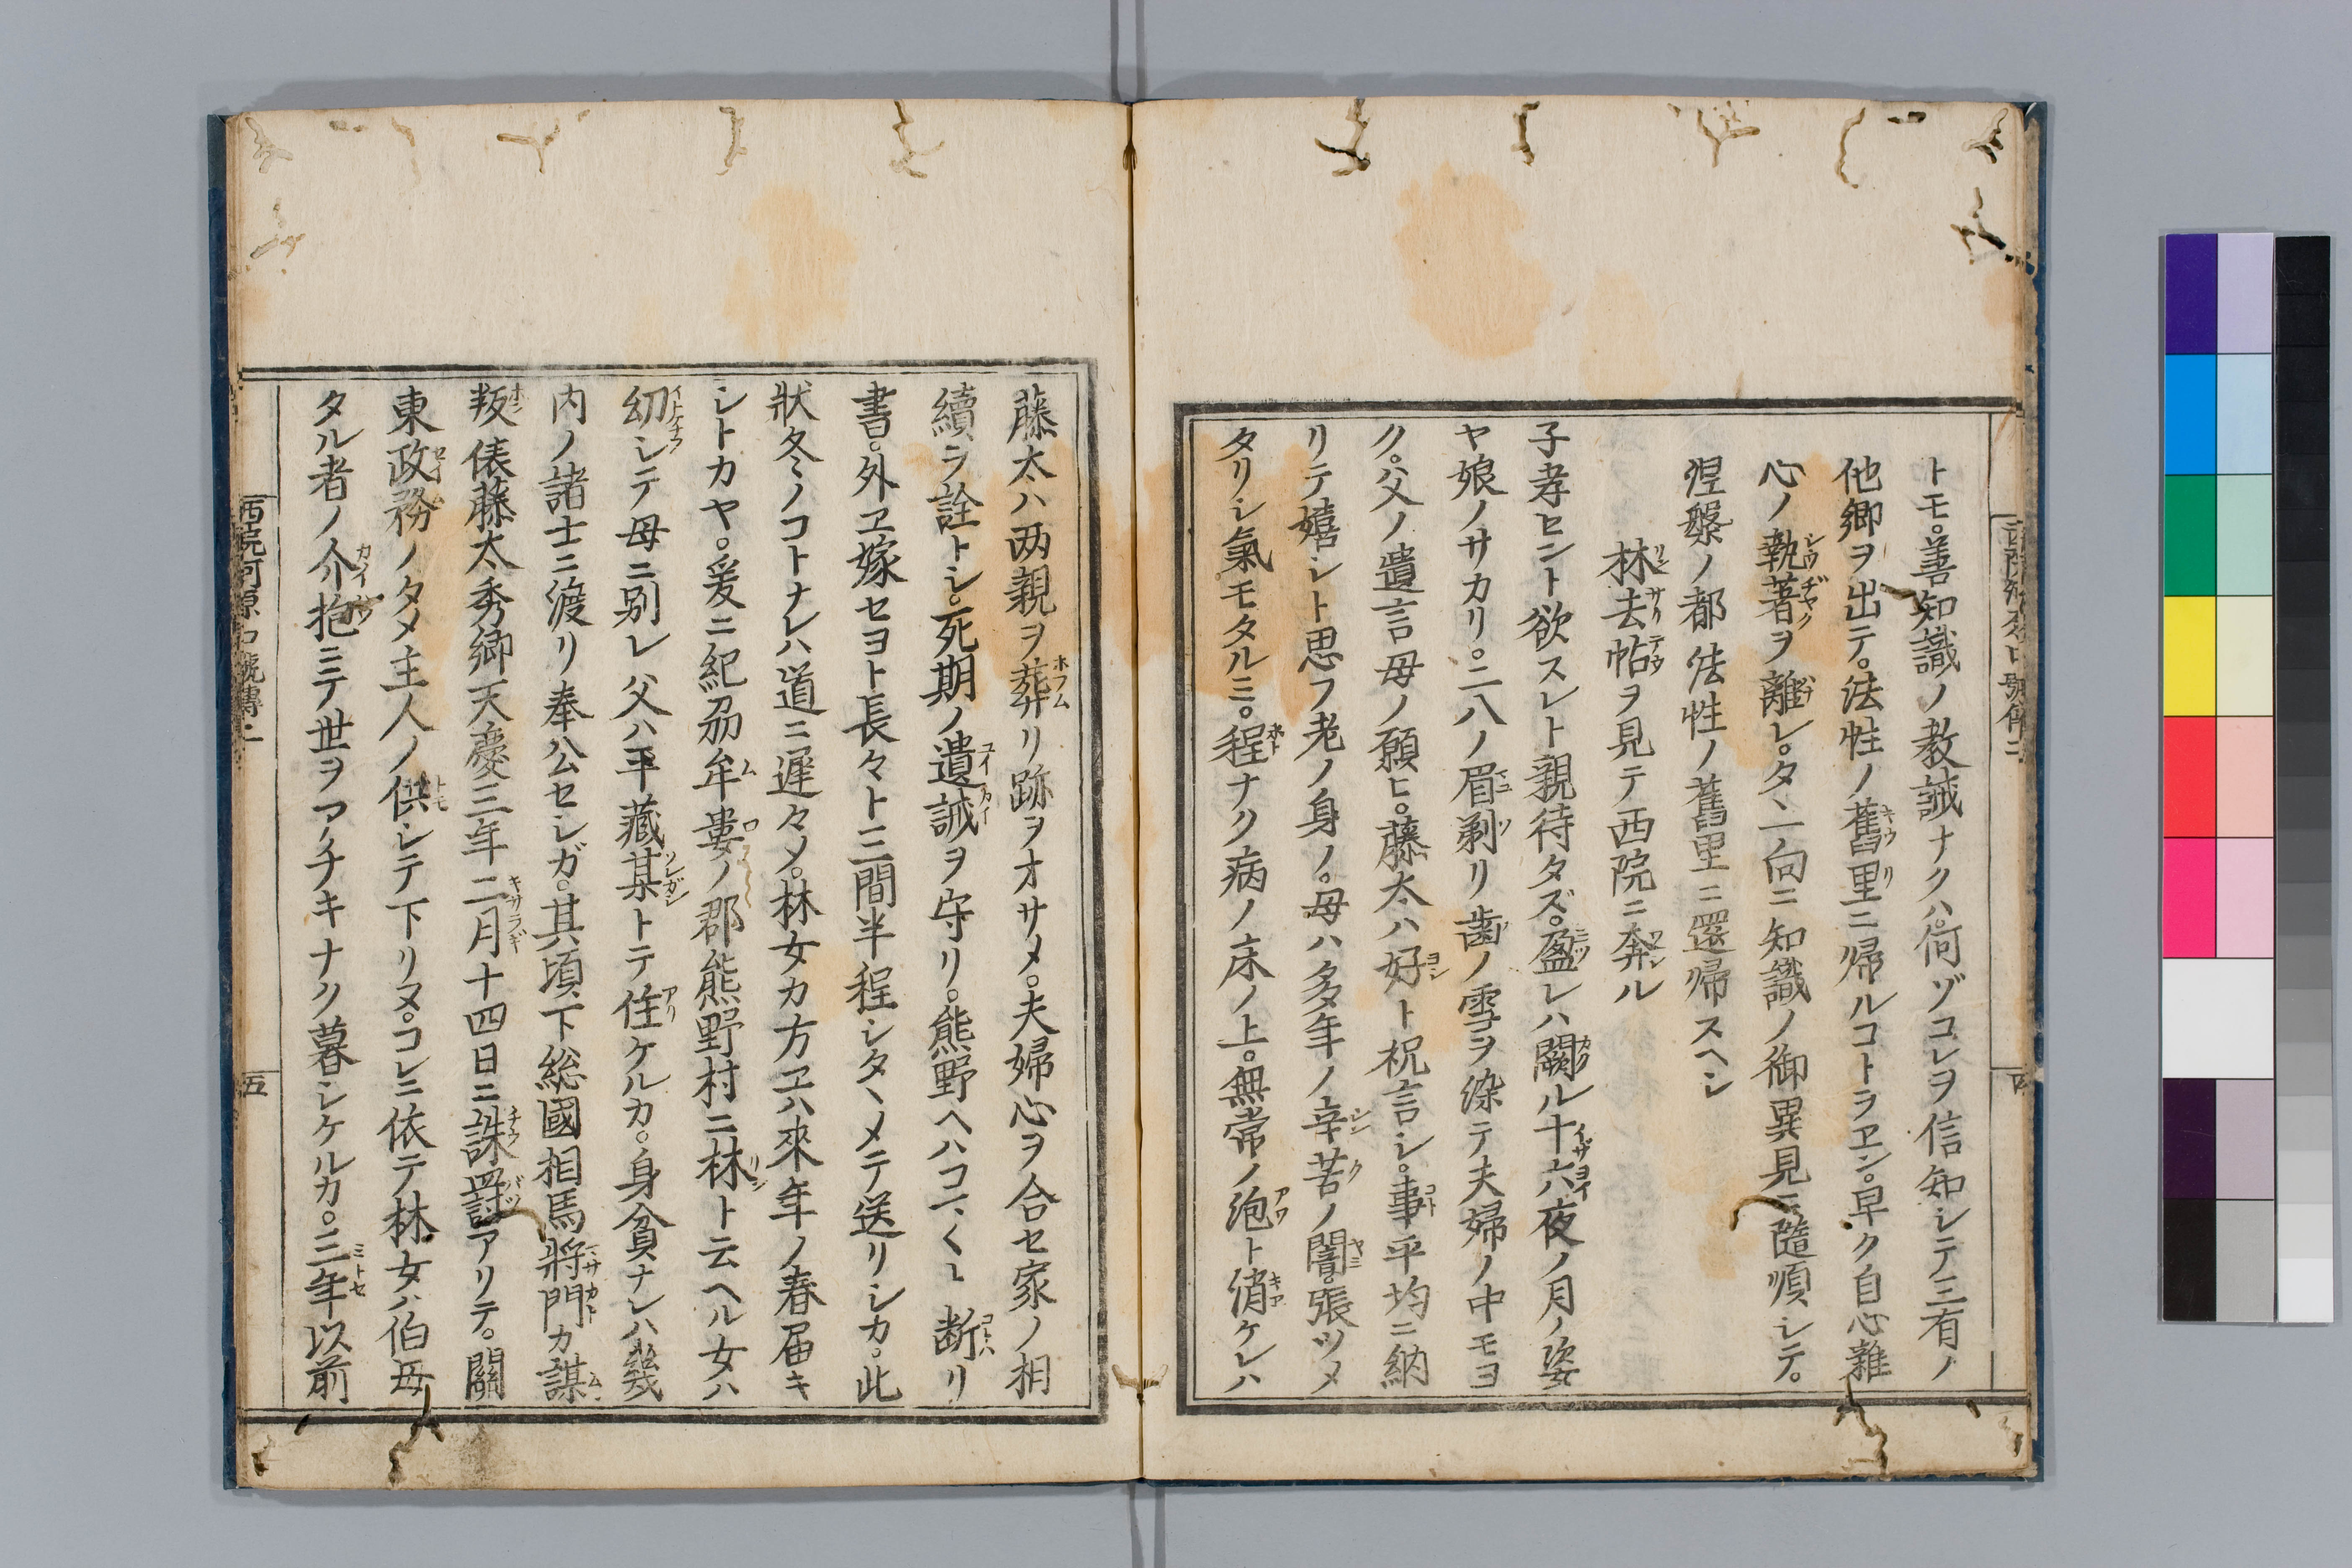 トモ。善知識ノ教誡ナクハ。何ゾコレヲ信知シテ三有ノ
他郷ヲ出テ。法性ノ舊里ニ帰ルコトヲヱン。早ク自心雜
心ノ執著ヲ離レ。タヽ一向ニ知識ノ御異見ニ隨順シテ。
涅槃ノ都法性ノ舊里ニ還帰スヘシ
林去帖ヲ見テ西院ニ奔ル
子孝セント欲スレト親待タズ。盈レハ闕ル十六夜ノ月ノ姿
ヤ娘ノサカリ。二八ノ眉剃リ歯ノ雪ヲ染テ夫婦ノ中モヨ
ク。父ノ遺言母ノ願ヒ。藤太ハ好ト祝言シ。事平均ニ納
リテ嬉シト思フ老ノ身ノ。母ハ多年ノ辛苦ノ闇。張ツメ
タリシ氣モタルミ。程ナク病ノ床ノ上。無常ノ泡ト消ケレハ
藤太ハ两親ヲ葬リ跡ヲオサメ。夫婦心ヲ合セ家ノ相
續ヲ詮トシ。死期ノ遺誡ヲ守リ。熊野ヘハコマ〱ヽ断リ
書。外ヱ嫁セヨト長々ト三間半程シタヽメテ送リシカ。此
狀冬ノコトナレハ道ニ遲々メ。林女カ方ヱハ來年ノ春届キ
シトカヤ。爰ニ紀刕牟婁ノ郡熊野村ニ林ト云ヘル女ハ
幼シテ母ニ別レ父ハ平藏某トテ住ケルカ。身貧ナレハ幾
内ノ諸士ニ渡リ奉公セシガ。其頃下総國相馬將門カ謀
叛俵藤太秀郷天慶三年二月十四日ニ誅罸アリテ。關
東政務ノタメ主人ノ供シテ下リヌ。コレニ依テ林女ハ伯母
タル者ノ介抱ニテ世ヲアチキナク暮シケルカ。三年以前
西院河原口號傳二
五